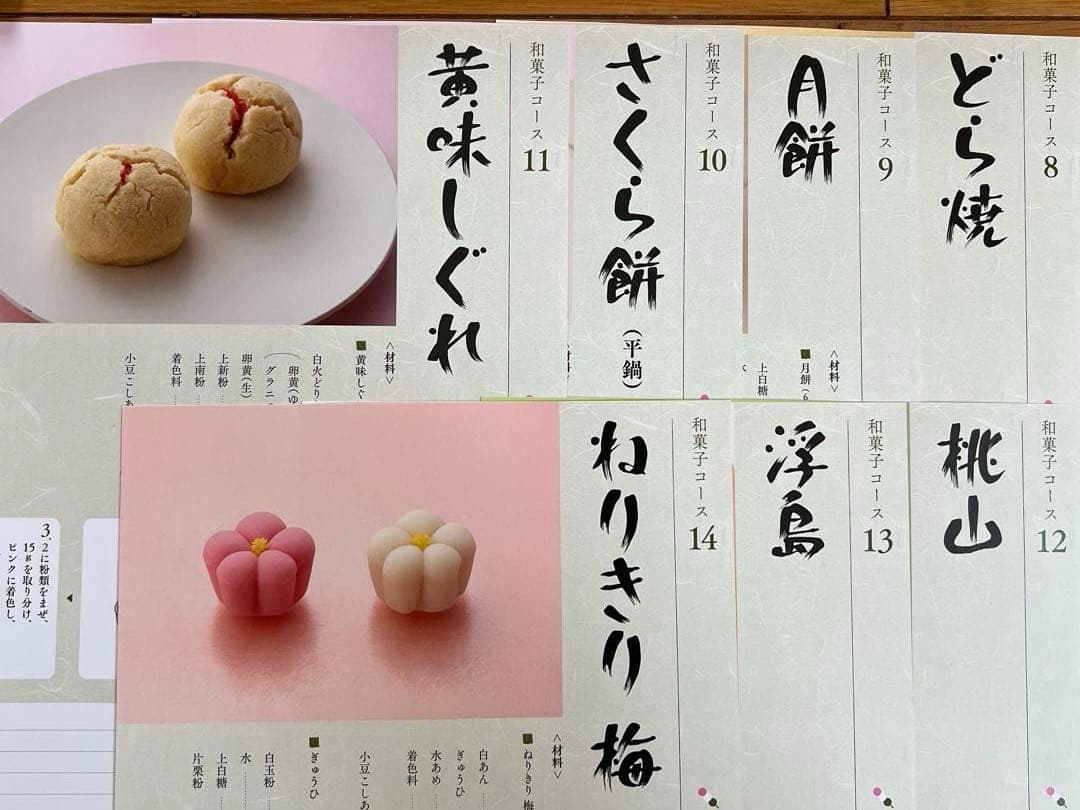 和菓子コース 8
どら焼
和菓子コース 9
月餅
〈材料〉
月餅(6
上白糖
水
和菓子コース 10
さくら餅(平鍋)
和菓子コース 11
黄味しぐれ
〈材料〉
黄味しぐ
白火どり
(卵黄(ゆ
(グラニ
卵黄(生)
上新粉
上南粉
着色料
小豆こしあ
3. 2に粉類をまぜ、
15gを取り分け、
ピンクに着色し、
和菓子コース 12
桃山
和菓子コース 13
浮島
和菓子コース 14
ねりきり 梅
〈材料〉
ねりきり 梅
白あん
ぎゅうひ
水あめ
着色料
小豆こしあ
ぎゅうひ
白玉粉
水
上白糖
片栗粉